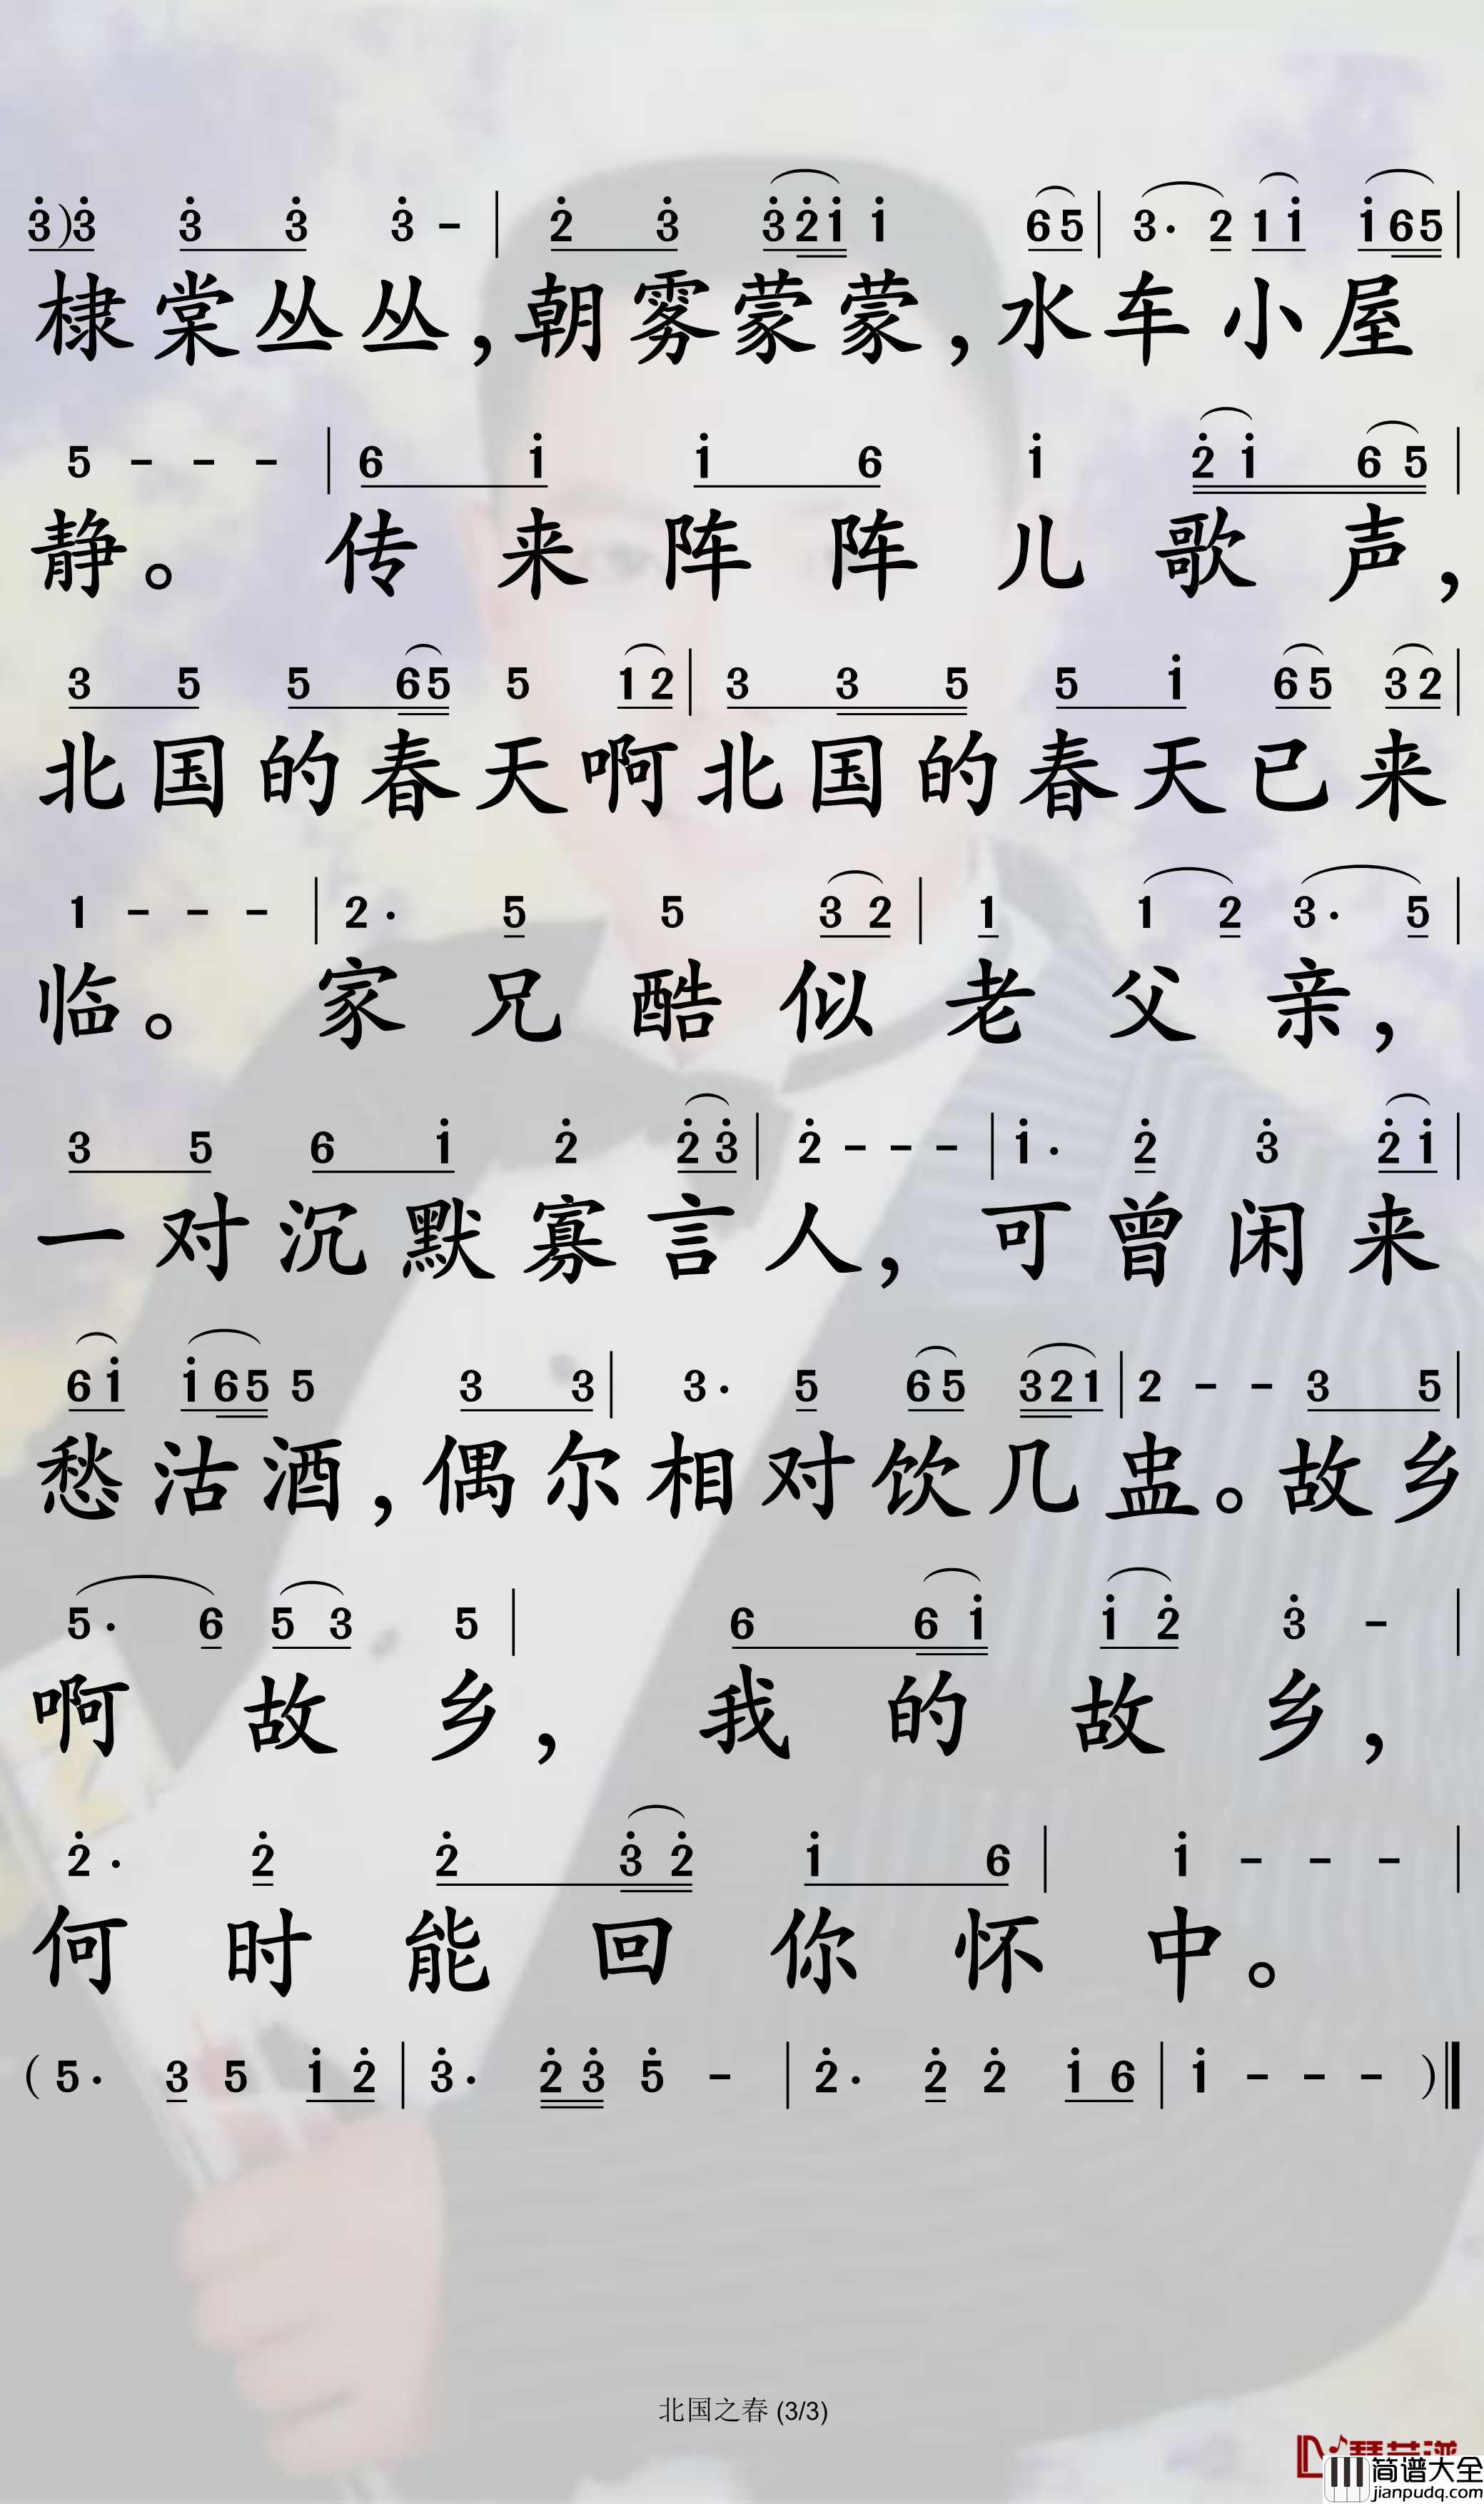 3̇)3̇ 3̇ 3̇ 3̇ - | 2̇ 3̇ 3̇2̇1̇ 1̇ 65 | 3· 2 11̇ 1̇65 |
棣棠丛丛，朝雾蒙蒙，水车小屋
5 - - - | 6 1̇ 1̇ 6 1̇ 2̇1̇ 65 |
静。传来阵阵儿歌声，
3 5 5 65 5 12 | 3 3 5 5 1̇ 65 32 |
北国的春天啊北国的春天已来
1 - - - | 2· 5 5 32 | 1 1 2 3· 5 |
临。家兄酷似老父亲，
3 5 6 1̇ 2̇ 2̇3̇ | 2̇ - - - | 1̇· 2̇ 3̇ 2̇1̇ |
一对沉默寡言人，可曾闲来
61̇ 1̇65 5 3 3 | 3· 5 65 321 | 2 - - 3 5 |
愁沽酒，偶尔相对饮几盅。故乡
5· 6 5 3 5 | 6 6 1̇ 1̇ 2̇ 3̇ - |
啊故乡，我的故乡，
2̇· 2̇ 2̇ 3̇ 2̇ 1̇ 6 | 1̇ - - - |
何时能回你怀中。
(5· 3 5 1̇ 2̇ | 3̇· 2̇3̇ 5̇ - | 2̇· 2̇ 2̇ 1̇ 6 | 1̇ - - - )‖
北国之春 (3/3)
简谱大全
jianpudq.com